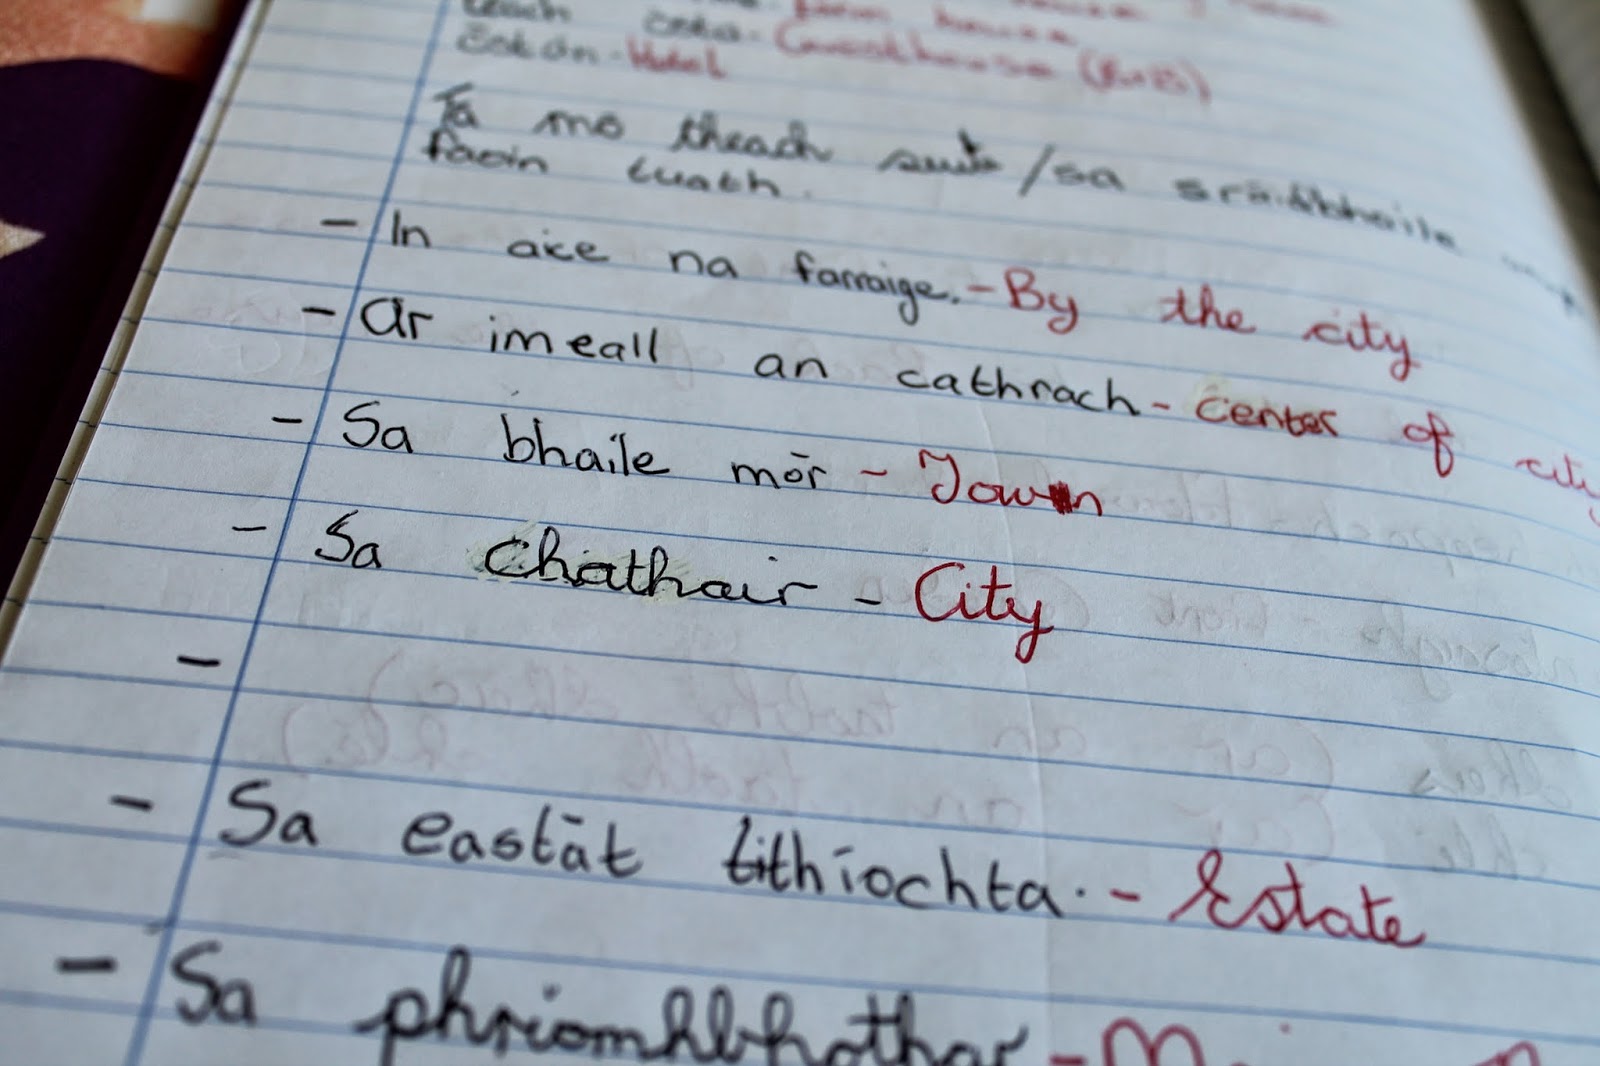 teach - farm house
óstán - Hotel Guesthouse (B+B)
Tá mo theach suite / sa sráidbhaile
faoin tuath.
- In aice na farraige. - By the city
- Ar imeall an cathrach - center of city
- Sa bhaile mór - Town
- Sa chathair - City
-
- Sa eastát tithíochta. - Estate
- Sa phríomhbhothar -